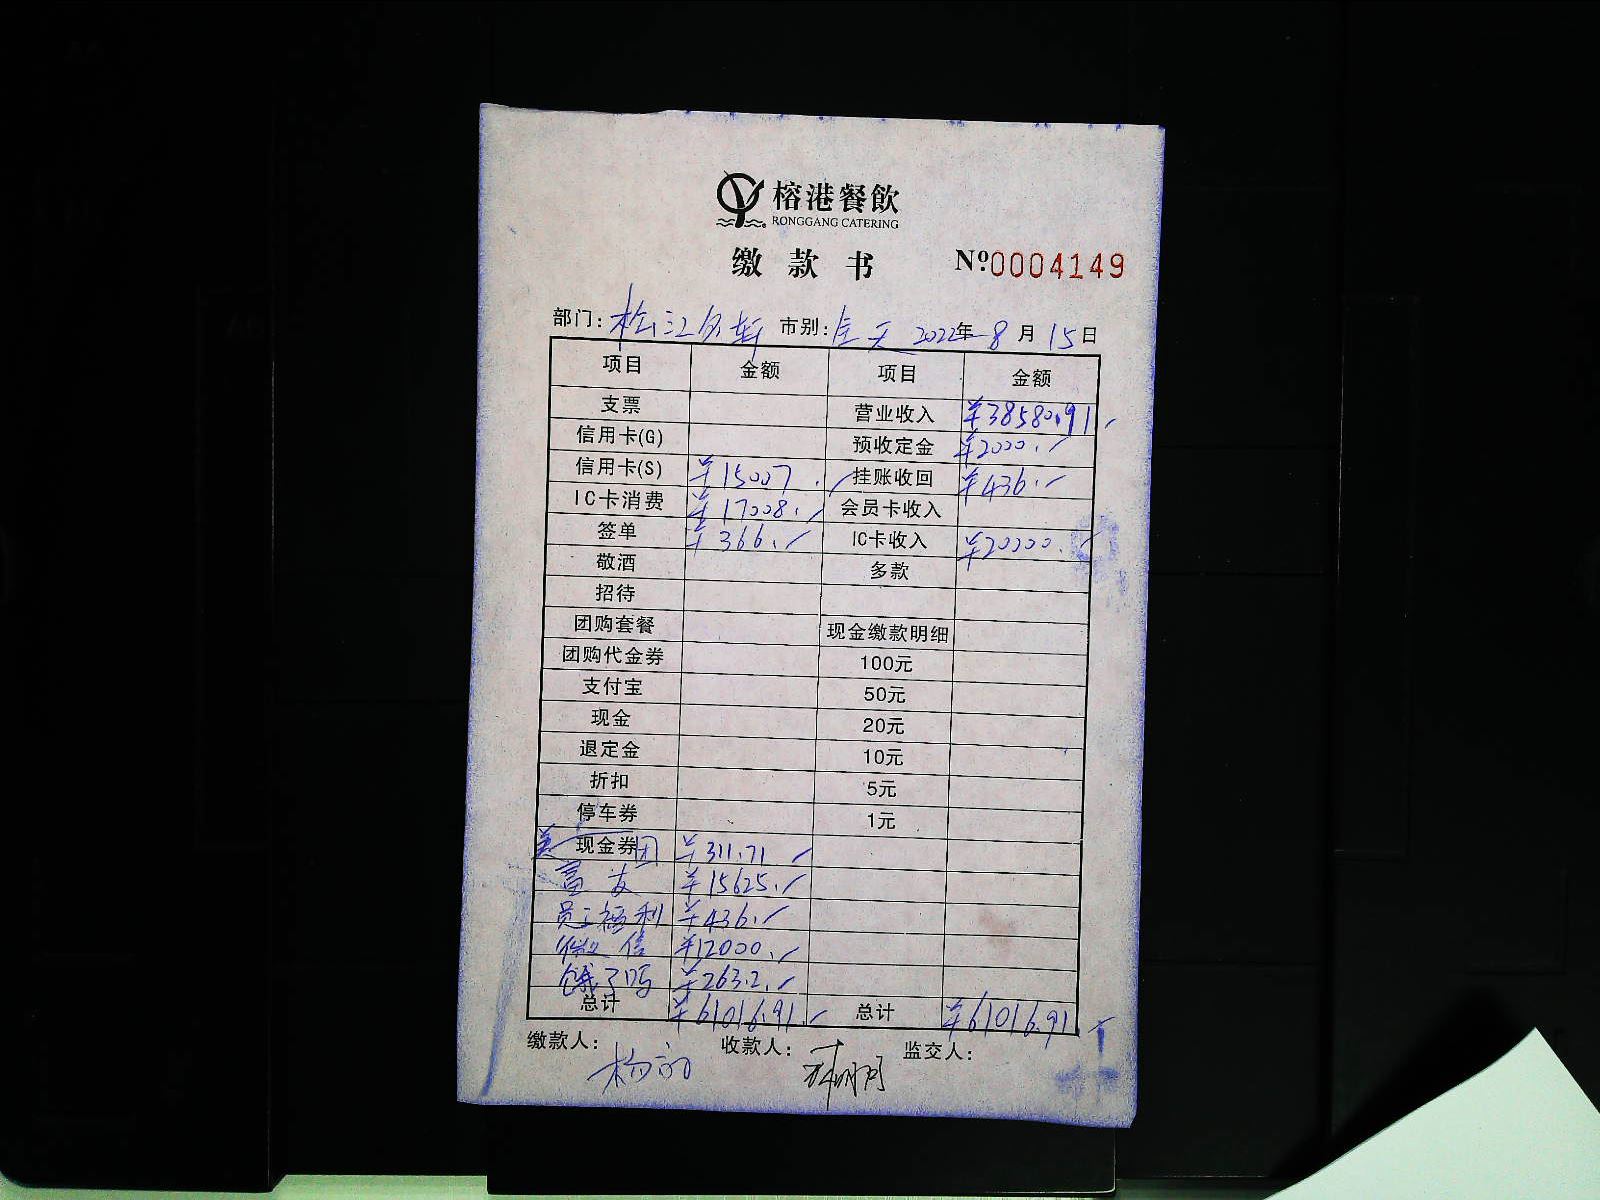 榕港餐飲
RONGGANG CATERING
缴款书 Nº0004149
部门: 市别: 全天 2022年8月15日
项目 金额 项目 金额
支票 营业收入 ¥38580.91
信用卡(G) 预收定金 ¥2000.
信用卡(S) ¥15007. 挂账收回 ¥436.
IC卡消费 ¥17008. 会员卡收入
签单 ¥366. IC卡收入 ¥20000.
敬酒 多款
招待
团购套餐 现金缴款明细
团购代金券 100元
支付宝 50元
现金 20元
退定金 10元
折扣 5元
停车券 1元
现金券 美团 ¥311.71
富友 ¥15625.
员工福利 ¥436.
微信 ¥12000.
饿了吗 ¥263.2.
总计 ¥61016.91 总计 ¥61016.91
缴款人: 收款人: 监交人: